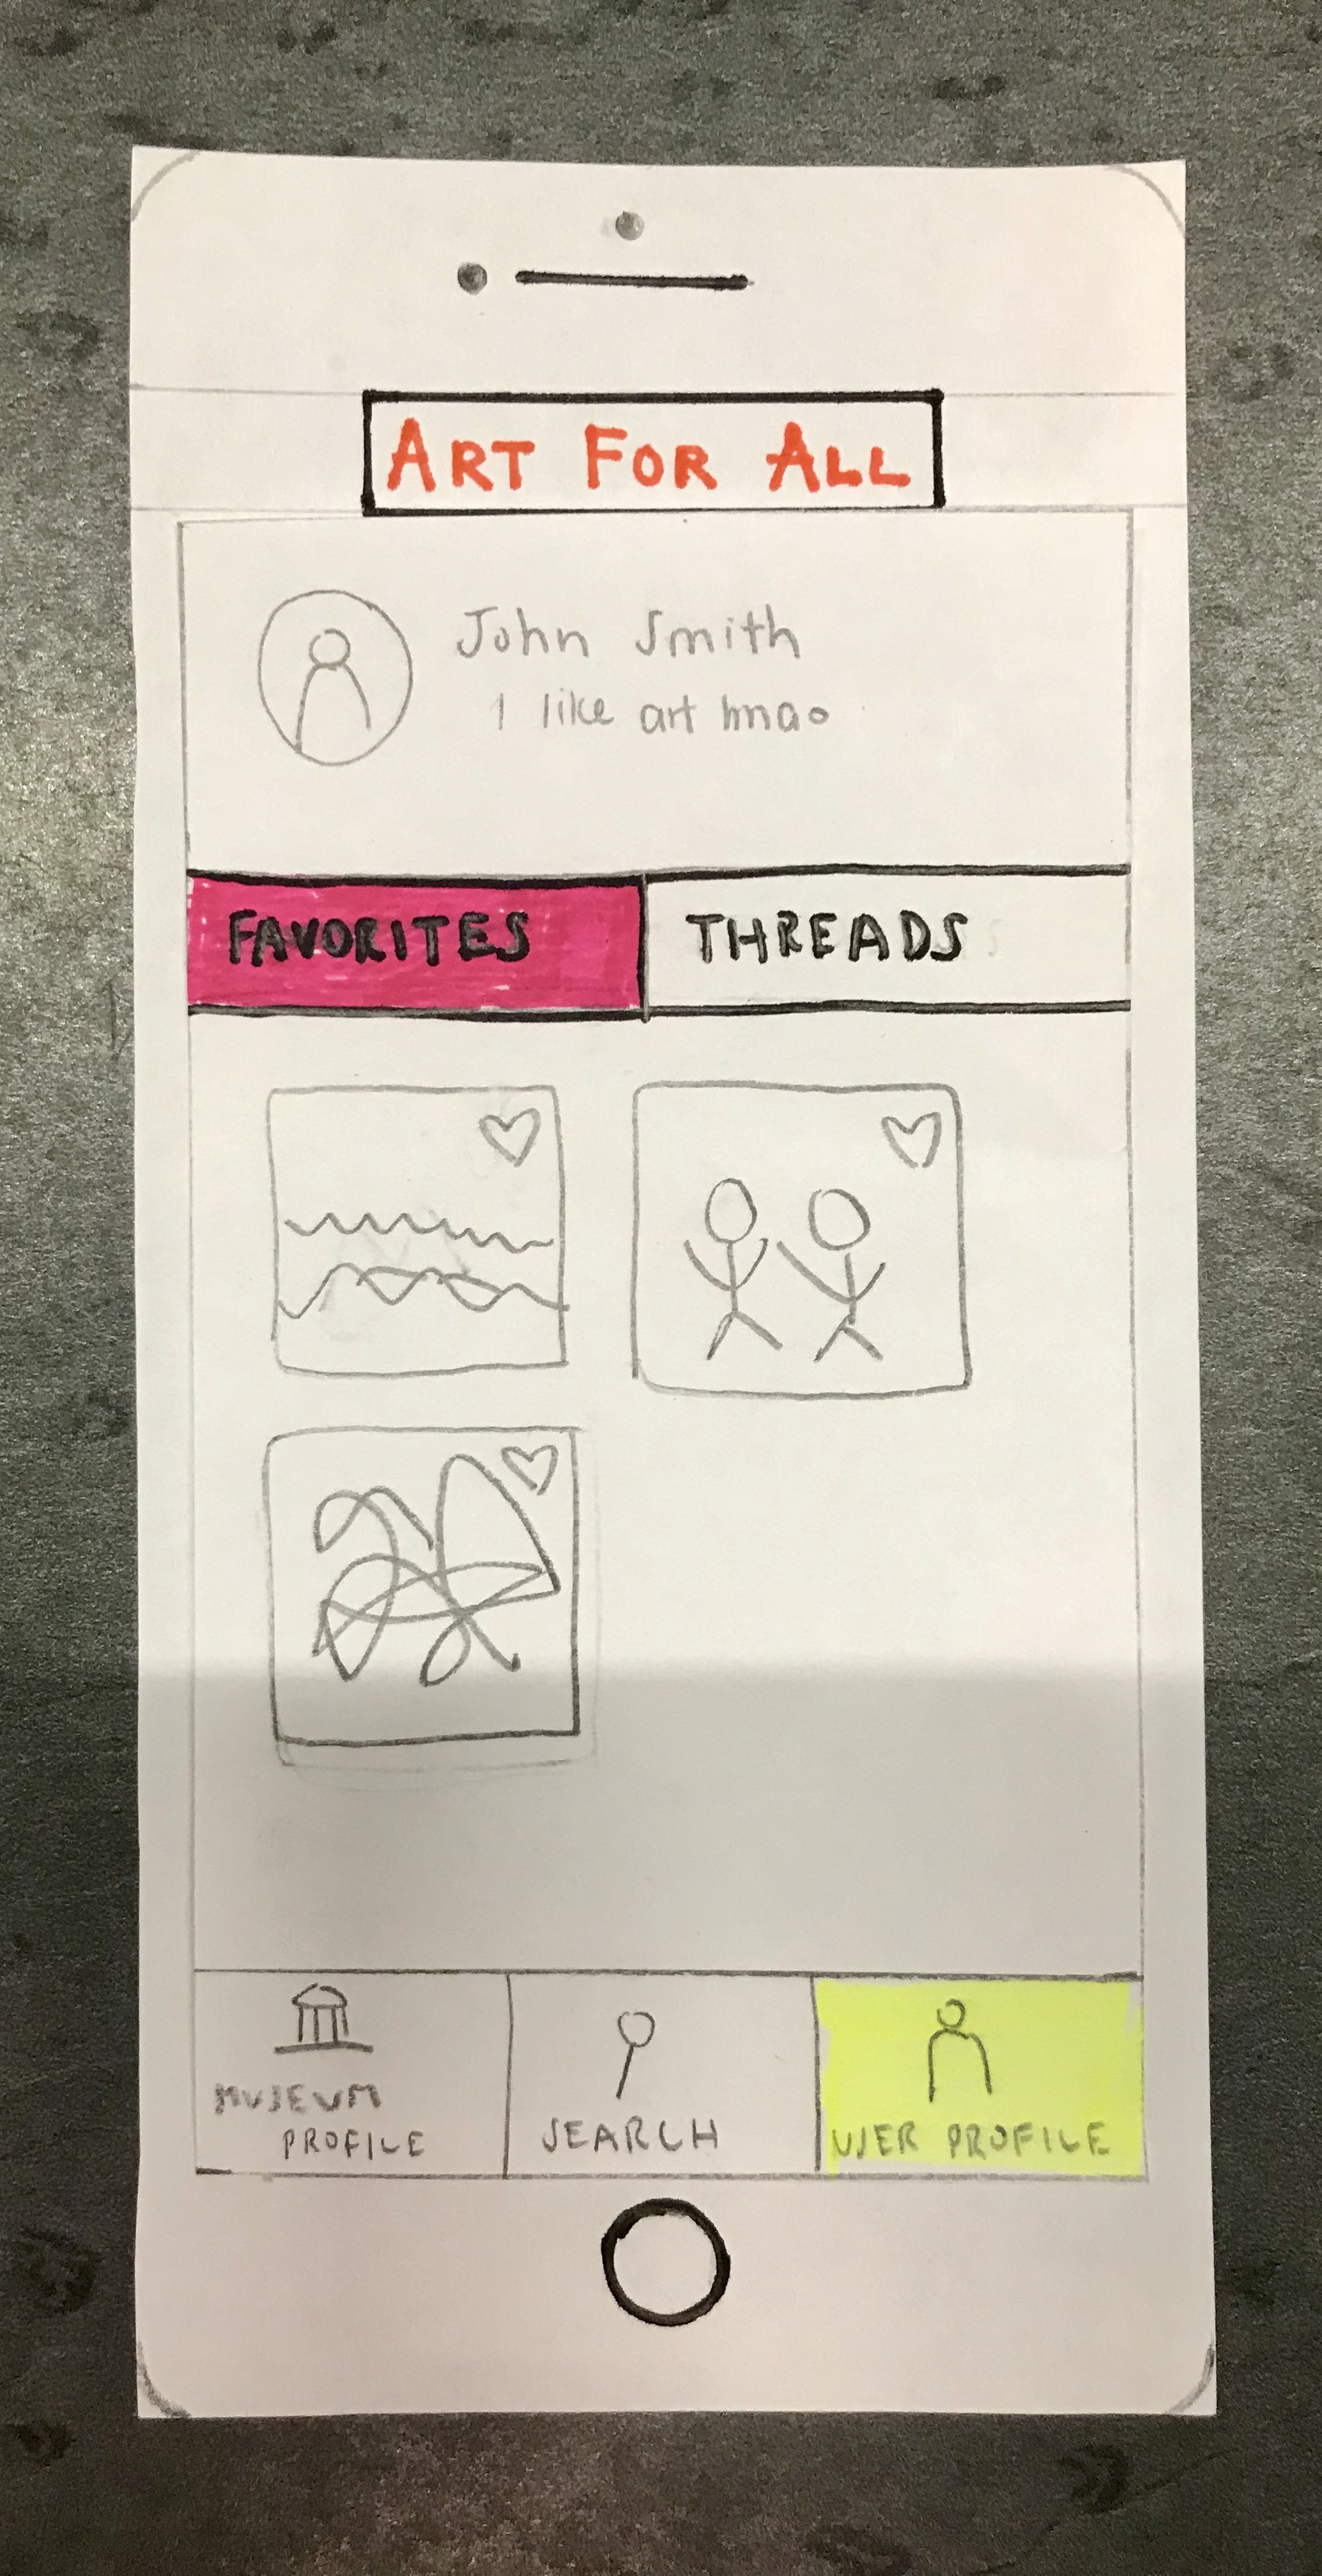 ART FOR ALL
John Smith
I like art lmao
FAVORITES THREADS
MUSEUM
PROFILE
SEARCH
USER PROFILE